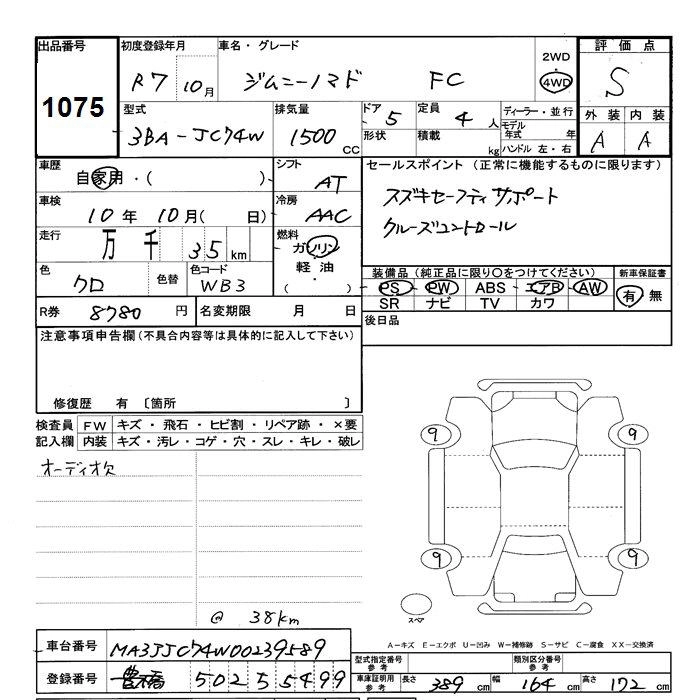 出品番号 初度登録年月 車名・グレード 2WD 評価点
1075 R7 10月 ジムニーノマド FC 4WD S
型式 排気量 ドア 5 定員 4人 ディーラー・並行 外装 内装
3BA-JC74W 1500 CC 形状 積載 kg モデル年式 年 A A
ハンドル 左・右
車歴 自家用・( ) シフト AT セールスポイント (正常に機能するものに限ります)
車検 10年 10月( 日) 冷房 AAC スズキセーフティサポート
走行 万 千 35 km 燃料 ガソリン クルーズコントロール
軽油
( )
色 クロ 色替 色コード WB3 装備品 (純正品に限り○をつけてください) 新車保証書
PS PW ABS エアB AW 有 無
SR ナビ TV カワ
R券 8780 円 名変期限 月 日 後日品
注意事項申告欄(不具合内容等は具体的に記入して下さい)
修復歴 有 〔箇所 〕
検査員 FW キズ・飛石・ヒビ割・リペア跡・×要
記入欄 内装 キズ・汚レ・コゲ・穴・スレ・キレ・破レ
オーディオ欠
9 9
9 9
スペア
@ 38km
A-キズ E-エクボ U-凹み W-補修跡 S-サビ C-腐食 XX-交換済
車台番号 MA3JJC74W00239589
型式指定番号 参考 類別区分番号 参考
登録番号 豊橋 502 5 5499
車庫証明用 参考 長さ 389 cm 幅 164 cm 高さ 172 cm